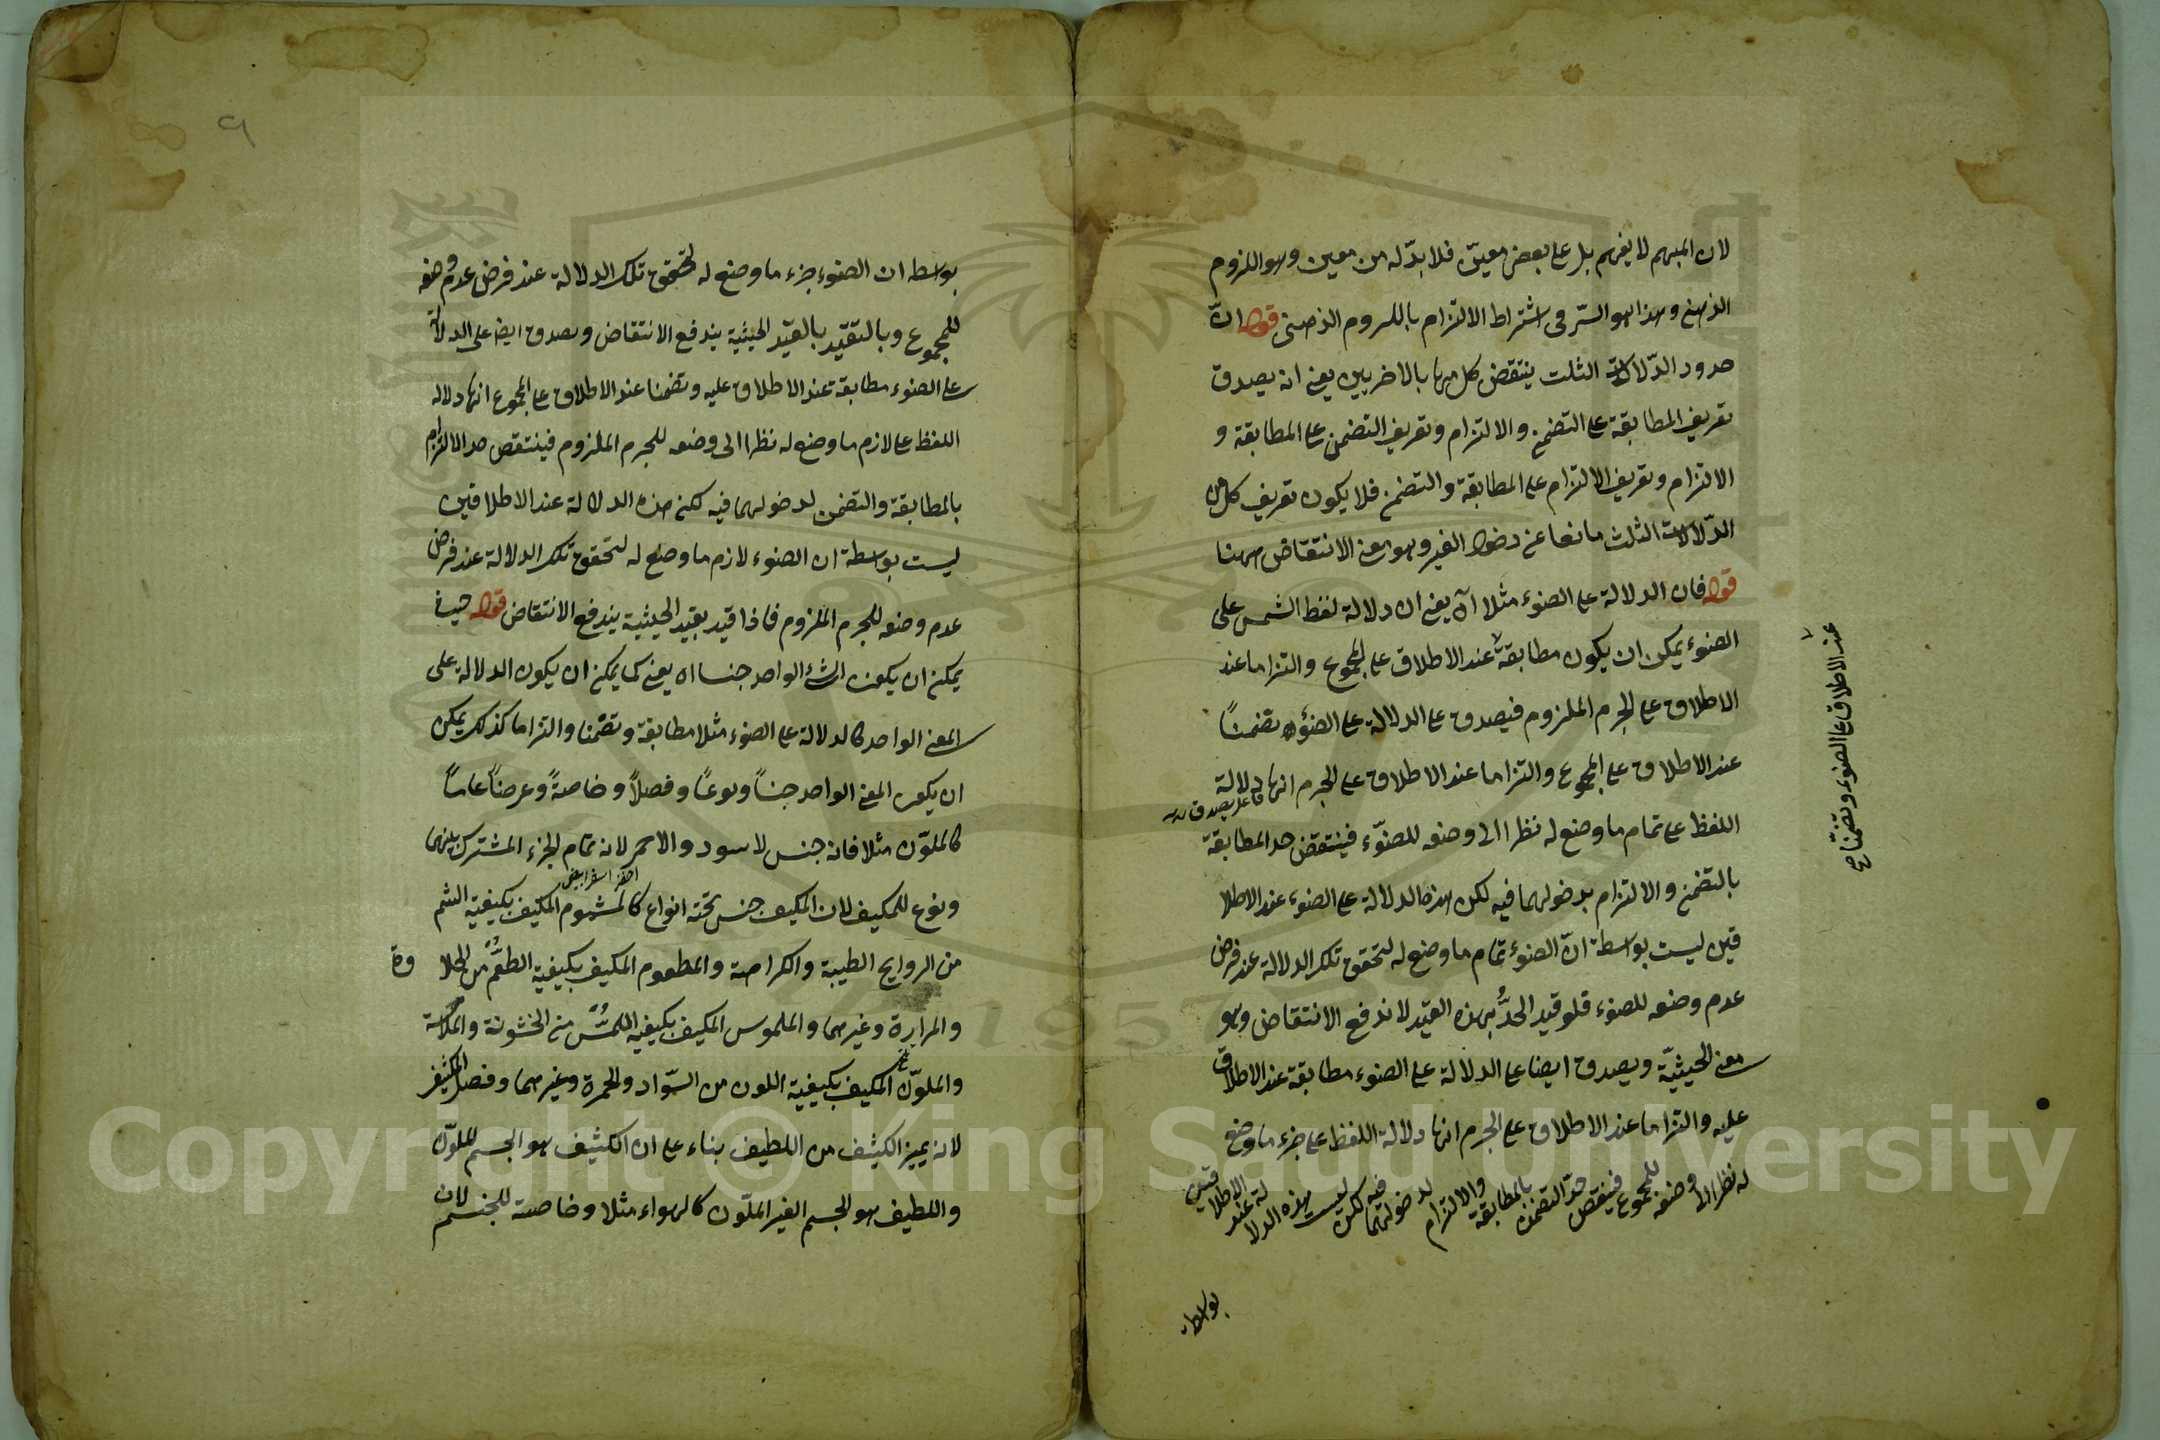 لان المبهم لا يفهم بل على بعض معين فلا بدّ له من معين وهو اللزوم
الذهني وهذا هو السّر فى اشتراط الالتزام باللزوم الذهنى قوله انّ
حدود الدّلالات الثلث ينتقض كل منها بالاخريين يعنى انه يصدق
تعريف المطابقة على التضمن والالتزام وتعريف التضمن على المطابقة و
الالتزام وتعريف الالتزام على المطابقة والتضمن فلا يكون تعريف كل من
الدّلالات الثلث مانعا عن دخول الغير وهو معنى الانتقاض ههنا
قوله فان الدلالة على الضوء مثلا اه يعنى ان دلالة لفظ الشمس على
الضوء يمكن ان يكون مطابقة عند الاطلاق على المجموع والتزاما عند
عند الاطلاق على الضوء وتضمّنا صح
الاطلاق على الجرم الملزوم فيصدق على الدلالة على الضوء تضمناً
عند الاطلاق على المجموع والتزاما عند الاطلاق على الجرم انها دلالة
اللفظ على تمام ما وضع له نظرا الى وضعه للضوّء فينتقض حد المطابقة
بالتضمن والالتزام بدخولهما فيه لكن هذه الدلالة على الضوء عند الاطلا
قين ليست بواسطة انّ الضوء تمام ما وضع له لتحقق تلك الدلالة عند فرض
عدم وضعه للضوء فلو قيد الحدُّ بهذه القيد لاندفع الانتقاض وهو
معنى الحيثيّة ويصدق ايضا على الدلالة على الضوء مطابقة عند الاطلاق
عليه والتزاما عند الاطلاق على الجرم انها دلالة اللفظ على جزء ما وضع
له نظرا الى وضعه للمجموع فينتقض حدّ التضمن بالمطابقة والالتزام لدخولهما فيه لكن ليست هذه الدلالة عند الاطلاقين
بواسطة
٩
بوسطه ان الضوء جزء ما وضع له لتحقق تلك الدلالة عند فرض عدم وضعه
للمجموع وبالتقيّد بالقيد الحيثية يندفع الانتقاض ويصدق ايضا على الدلالة
على الضوء مطابقة عند الاطلاق عليه وتضمنا عند الاطلاق على المجموع انها دلاله
اللفظ على لازم ما وضع له نظرا الى وضعه للجرم الملزوم فينتقض حد الالتزام
بالمطابقة والتضمن لدخولهما فيه لكن هذه الدلالة عند الاطلاقين
ليست بواسطة ان الضوء لازم ما وضع له لتحقق تلك الدلالة عند فرض
عدم وضعه للجرم الملزوم فاذا قيد بقيد الحيثية يندفع الانتقاض قوله حيث
يمكن ان يكون الشئ الواحد جنسا اه يعنى كما يمكن ان يكون الدلالة على
المعنى الواحد كالدلالة على الضوء مثلا مطابقة وتضمّنا والتزاما كذلك يمكن
ان يكون المعنى الواحد جنساً ونوعاً وفصلاً وخاصةً وعرضاً عاماً
كالملوّن مثلا فانه جنس لاسود والاحمر لانه تمام الجزء المشترك بينهما
ونوع للمكيف لان المكيف جنس تحته انواع كالمشموم المكيف بكيفية الشم
من الروايح الطيبة والكراهة والمطعوم المكيف بكيفية الطعم من الحلا وة
والمرارة وغيرهما والملموس المكيف بكيفيه اللمس من الخشونة والملاسة
والملوّن المكيف بكيفية اللون من السّواد والحمرة وغيرهما وفصل الكثيف
لانه يميز الكثيف من اللطيف بناء على ان الكثيف هو الجسم الملوّن
واللطيف هو الجسم الغير الملّون كالهواء مثلا وخاصة للجسم لان
Copyright © King Saud University
1957